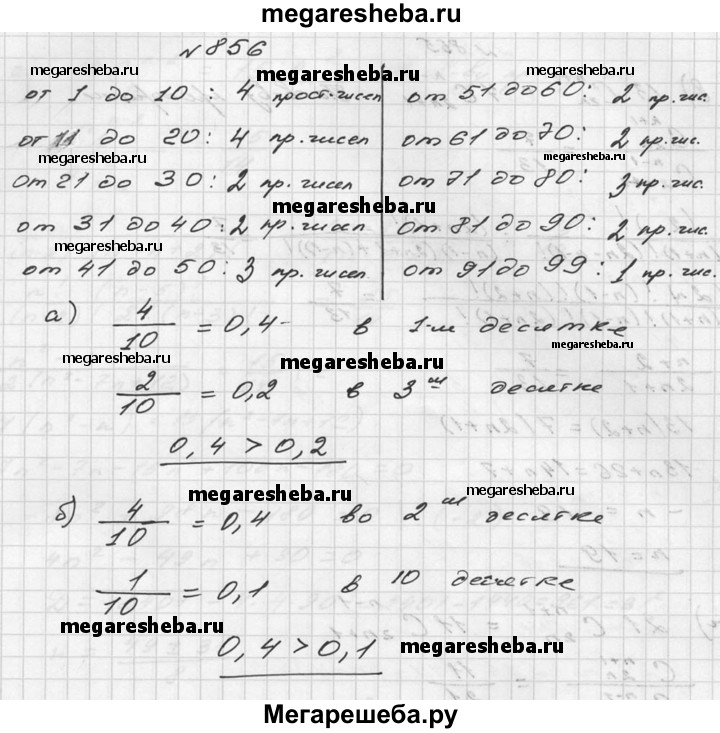 megaresheba.ru
№856
megaresheba.ru megaresheba.ru megaresheba.ru
от 1 до 10 : 4 прост. чисел
от 11 до 20 : 4 пр. чисел
megaresheba.ru
от 21 до 30 : 2 пр. чисел
megaresheba.ru
от 31 до 40 : 2 пр. чисел
megaresheba.ru
от 41 до 50 : 3 пр. чисел
от 51 до 60 : 2 пр. чис.
от 61 до 70 : 2 пр. чис.
megaresheba.ru
от 71 до 80 : 3 пр. чис.
от 81 до 90 : 2 пр. чис.
от 91 до 99 : 1 пр. чис.
а) 4/10 = 0,4 в 1-м десятке
megaresheba.ru megaresheba.ru megaresheba.ru
2/10 = 0,2 в 3ем десятке
0,4 > 0,2
megaresheba.ru megaresheba.ru
б) 4/10 = 0,4 во 2ом десятке
1/10 = 0,1 в 10 десятке
megaresheba.ru megaresheba.ru
0,4 > 0,1
Мегарешеба.ру